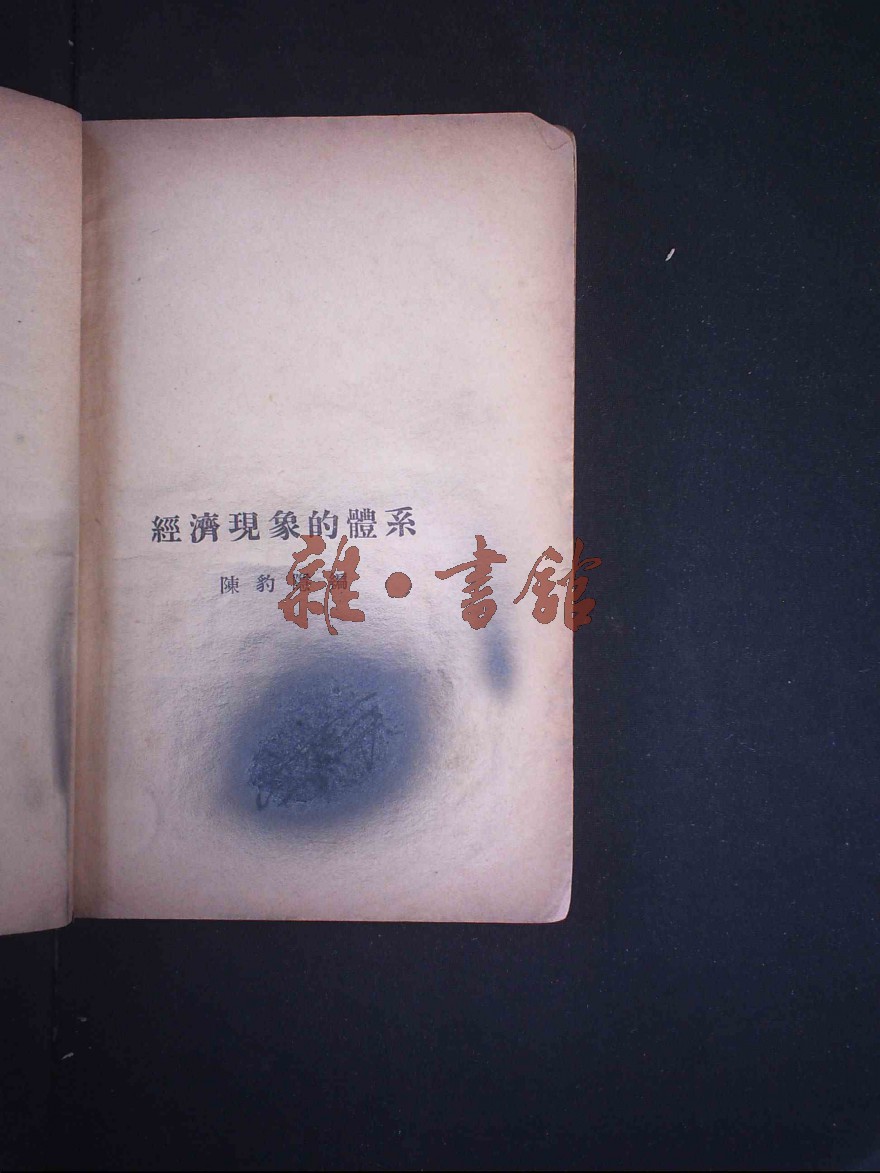 經濟現象的體系
陳豹隱編
雜·書館